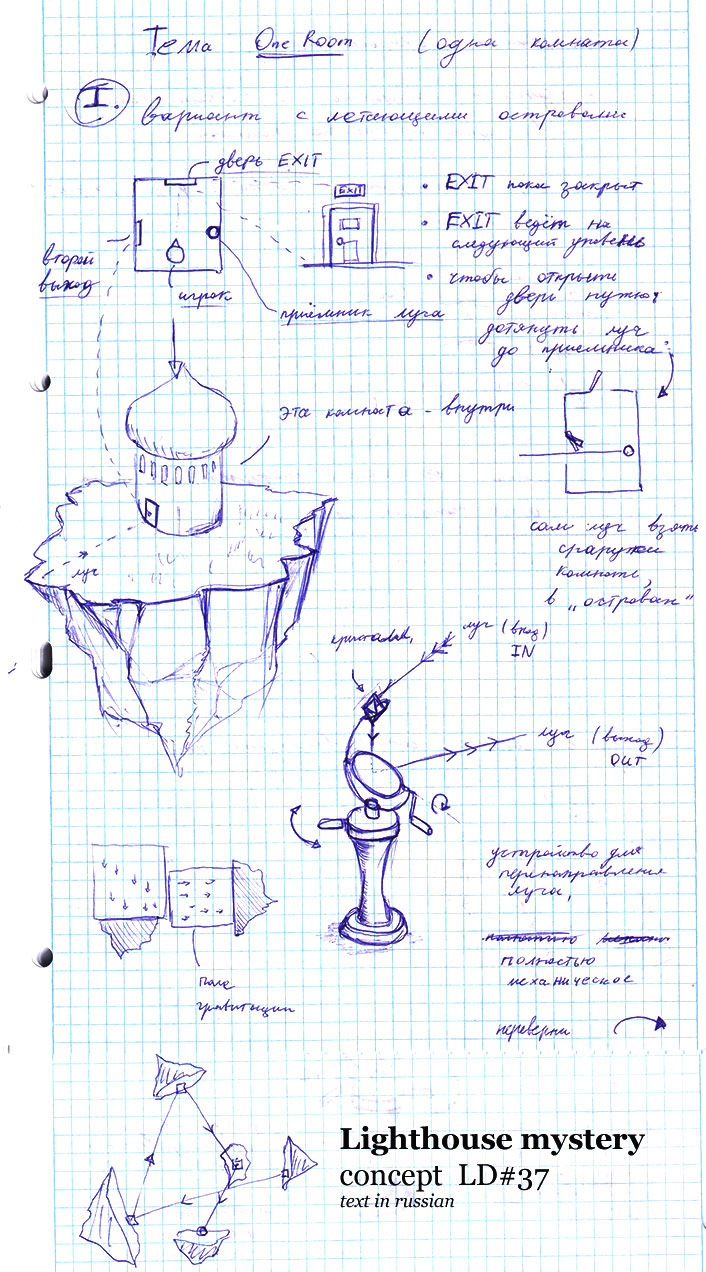 Тема One Room (одна комната)
I.
вариант с летающими островами
дверь EXIT
EXIT
второй
выход
игрок
приёмник луча
• EXIT пока закрыт
• EXIT ведёт на
следующий уровень
• чтобы открыть
дверь нужно
дотянуть луч
до приемника
эта комната - внутри
луч
сам луч взять
снаружи
комнаты,
в „островах"
кристалл,
луч (вход)
IN
луч (выход)
OUT
устройство для
перенаправления
луча,
полностью
механическое
поле
гравитации
переверни
Lighthouse mystery
concept LD#37
text in russian